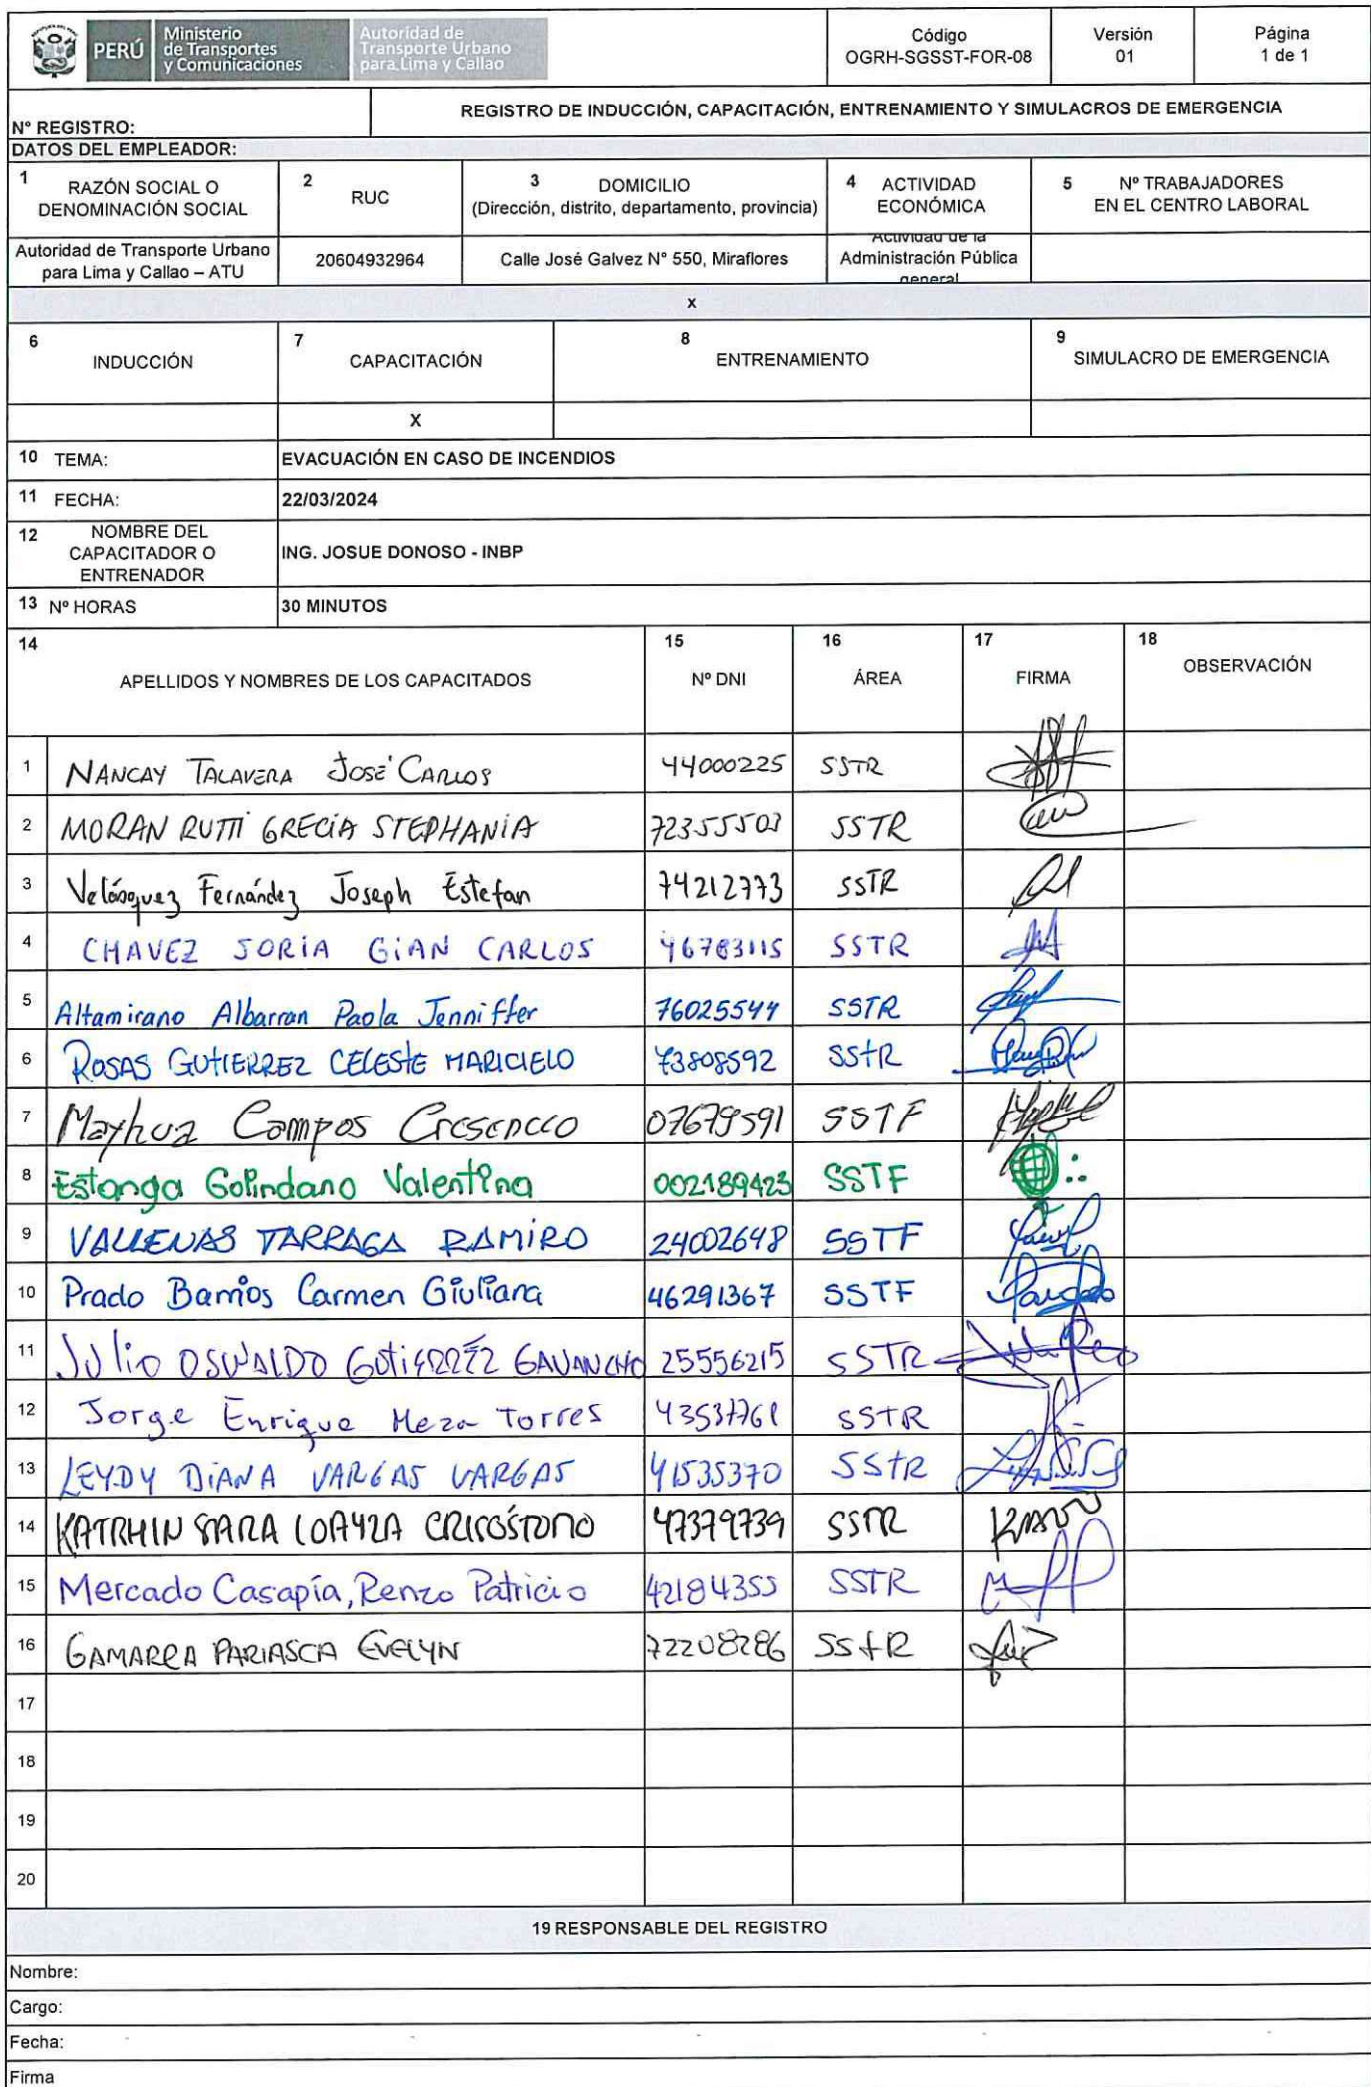 PERÚ
Ministerio
de Transportes
y Comunicaciones
Autoridad de
Transporte Urbano
para Lima y Callao
Código
OGRH-SGSST-FOR-08
Versión
01
Página
1 de 1
N° REGISTRO:
REGISTRO DE INDUCCIÓN, CAPACITACIÓN, ENTRENAMIENTO Y SIMULACROS DE EMERGENCIA
DATOS DEL EMPLEADOR:
1 RAZÓN SOCIAL O
DENOMINACIÓN SOCIAL
2 RUC
3 DOMICILIO
(Dirección, distrito, departamento, provincia)
4 ACTIVIDAD
ECONÓMICA
5 Nº TRABAJADORES
EN EL CENTRO LABORAL
Autoridad de Transporte Urbano
para Lima y Callao – ATU
20604932964
Calle José Galvez N° 550, Miraflores
Actividad de la
Administración Pública
general
x
6 INDUCCIÓN
7 CAPACITACIÓN
8 ENTRENAMIENTO
9 SIMULACRO DE EMERGENCIA
X
10 TEMA: EVACUACIÓN EN CASO DE INCENDIOS
11 FECHA: 22/03/2024
12 NOMBRE DEL
CAPACITADOR O
ENTRENADOR
ING. JOSUE DONOSO - INBP
13 Nº HORAS 30 MINUTOS
14 APELLIDOS Y NOMBRES DE LOS CAPACITADOS
15 Nº DNI
16 ÁREA
17 FIRMA
18 OBSERVACIÓN
1 NANCAY TALAVERA JOSÉ CARLOS 44000225 SSTR
2 MORAN RUTTI GRECIA STEPHANIA 72355503 SSTR
3 Velásquez Fernández Joseph Estefan 74212773 SSTR
4 CHAVEZ SORIA GIAN CARLOS 46783115 SSTR
5 Altamirano Albarran Paola Jenniffer 76025544 SSTR
6 ROSAS GUTIERREZ CELESTE MARICIELO 73808592 SStR
7 Mayhua Campos Cresencio 07679591 SSTF
8 Estanga Golindano Valentina 002189423 SSTF
9 VALLENAS TARRAGA RAMIRO 24002648 SSTF
10 Prado Barrios Carmen Giuliana 46291367 SSTF
11 Julio OSWALDO GUTIERREZ GAVANCHO 25556215 SSTR
12 Jorge Enrique Meza Torres 43537761 SSTR
13 LEYDY DIANA VARGAS VARGAS 41535370 SStR
14 KATRHIN SARA LOAYZA CRISÓSTOMO 47379739 SSTR
15 Mercado Casapía, Renzo Patricio 42184355 SSTR
16 GAMARRA PARIASCA EVELYN 72208286 SStR
17
18
19
20
19 RESPONSABLE DEL REGISTRO
Nombre:
Cargo:
Fecha:
Firma